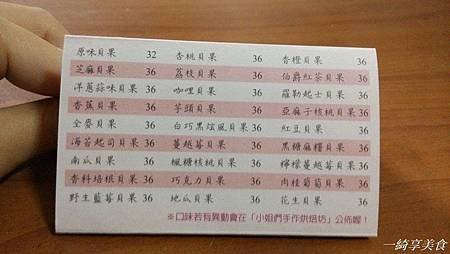 原味貝果 32 杏桃貝果 36 香橙貝果 36
芝麻貝果 36 荔枝貝果 36 伯爵紅茶貝果 36
洋蔥蒜味貝果 36 咖哩貝果 36 羅勒起士貝果 36
香蕉貝果 36 芋頭貝果 36 亞麻子核桃貝果 36
全麥貝果 36 白巧黑炫風貝果 36 紅豆貝果 36
海苔起司貝果 36 蔓越莓貝果 36 黑糖麻糬貝果 36
南瓜貝果 36 楓糖核桃貝果 36 檸檬蔓越莓貝果 36
香料培根貝果 36 巧克力貝果 36 肉桂葡萄貝果 36
野生藍莓貝果 36 地瓜貝果 36 花生貝果 36
※口味若有異動會在「小姐們手作烘焙坊」公佈喔！
一綺享美食